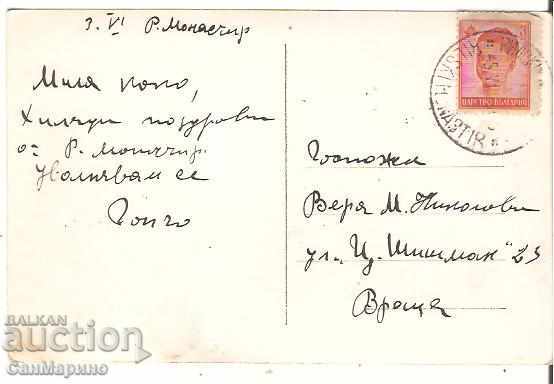 3. VI Р. Монастир
Мила како,
Хиляди поздрави
от Р. Монастир.
Уволнявам се
Гончо
ЦАРСТВО БЪЛГАРИЯ
Госпожа
Вера М. Николова
ул. „Ц. Шишман" 23
Враца
BALKAN
auction
СанМарино